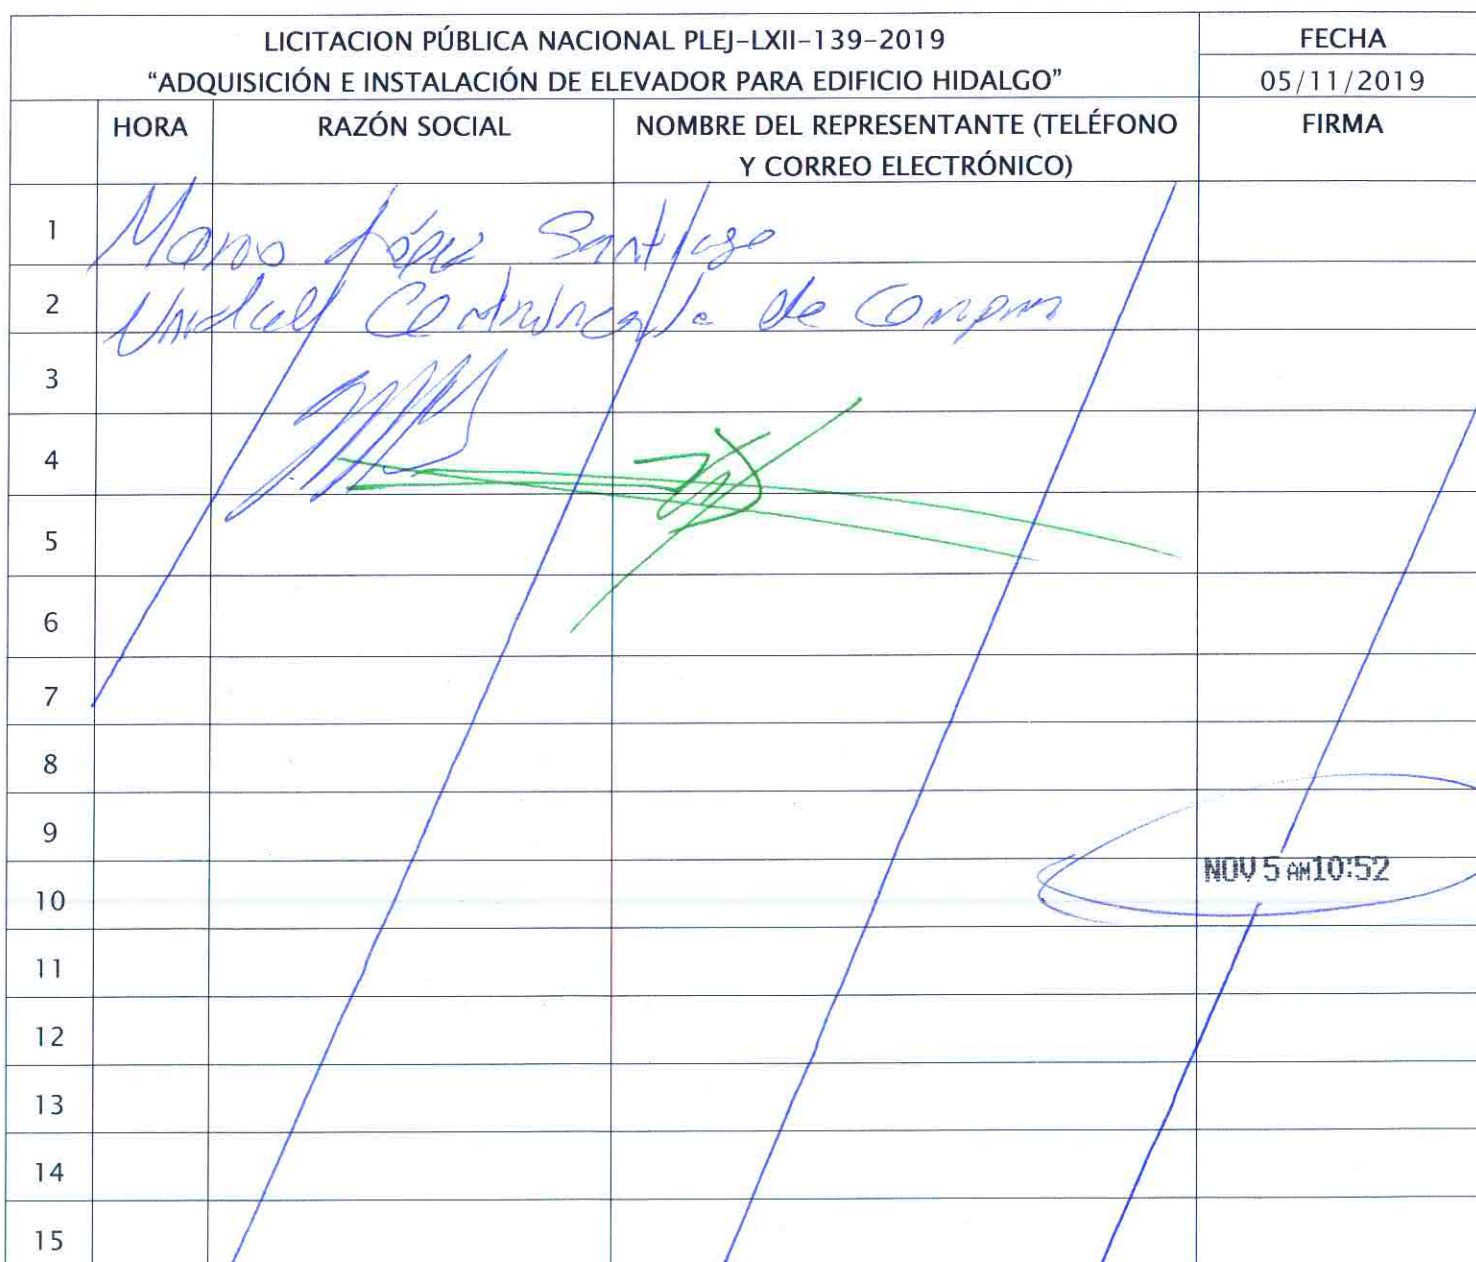 LICITACION PÚBLICA NACIONAL PLEJ-LXII-139-2019
“ADQUISICIÓN E INSTALACIÓN DE ELEVADOR PARA EDIFICIO HIDALGO”
FECHA
05/11/2019
HORA
RAZÓN SOCIAL
NOMBRE DEL REPRESENTANTE (TELÉFONO
Y CORREO ELECTRÓNICO)
FIRMA
1
Mario López Santiago
2
Unidad de
3
4
5
6
7
8
9
NOV 5 AM10:52
10
11
12
13
14
15